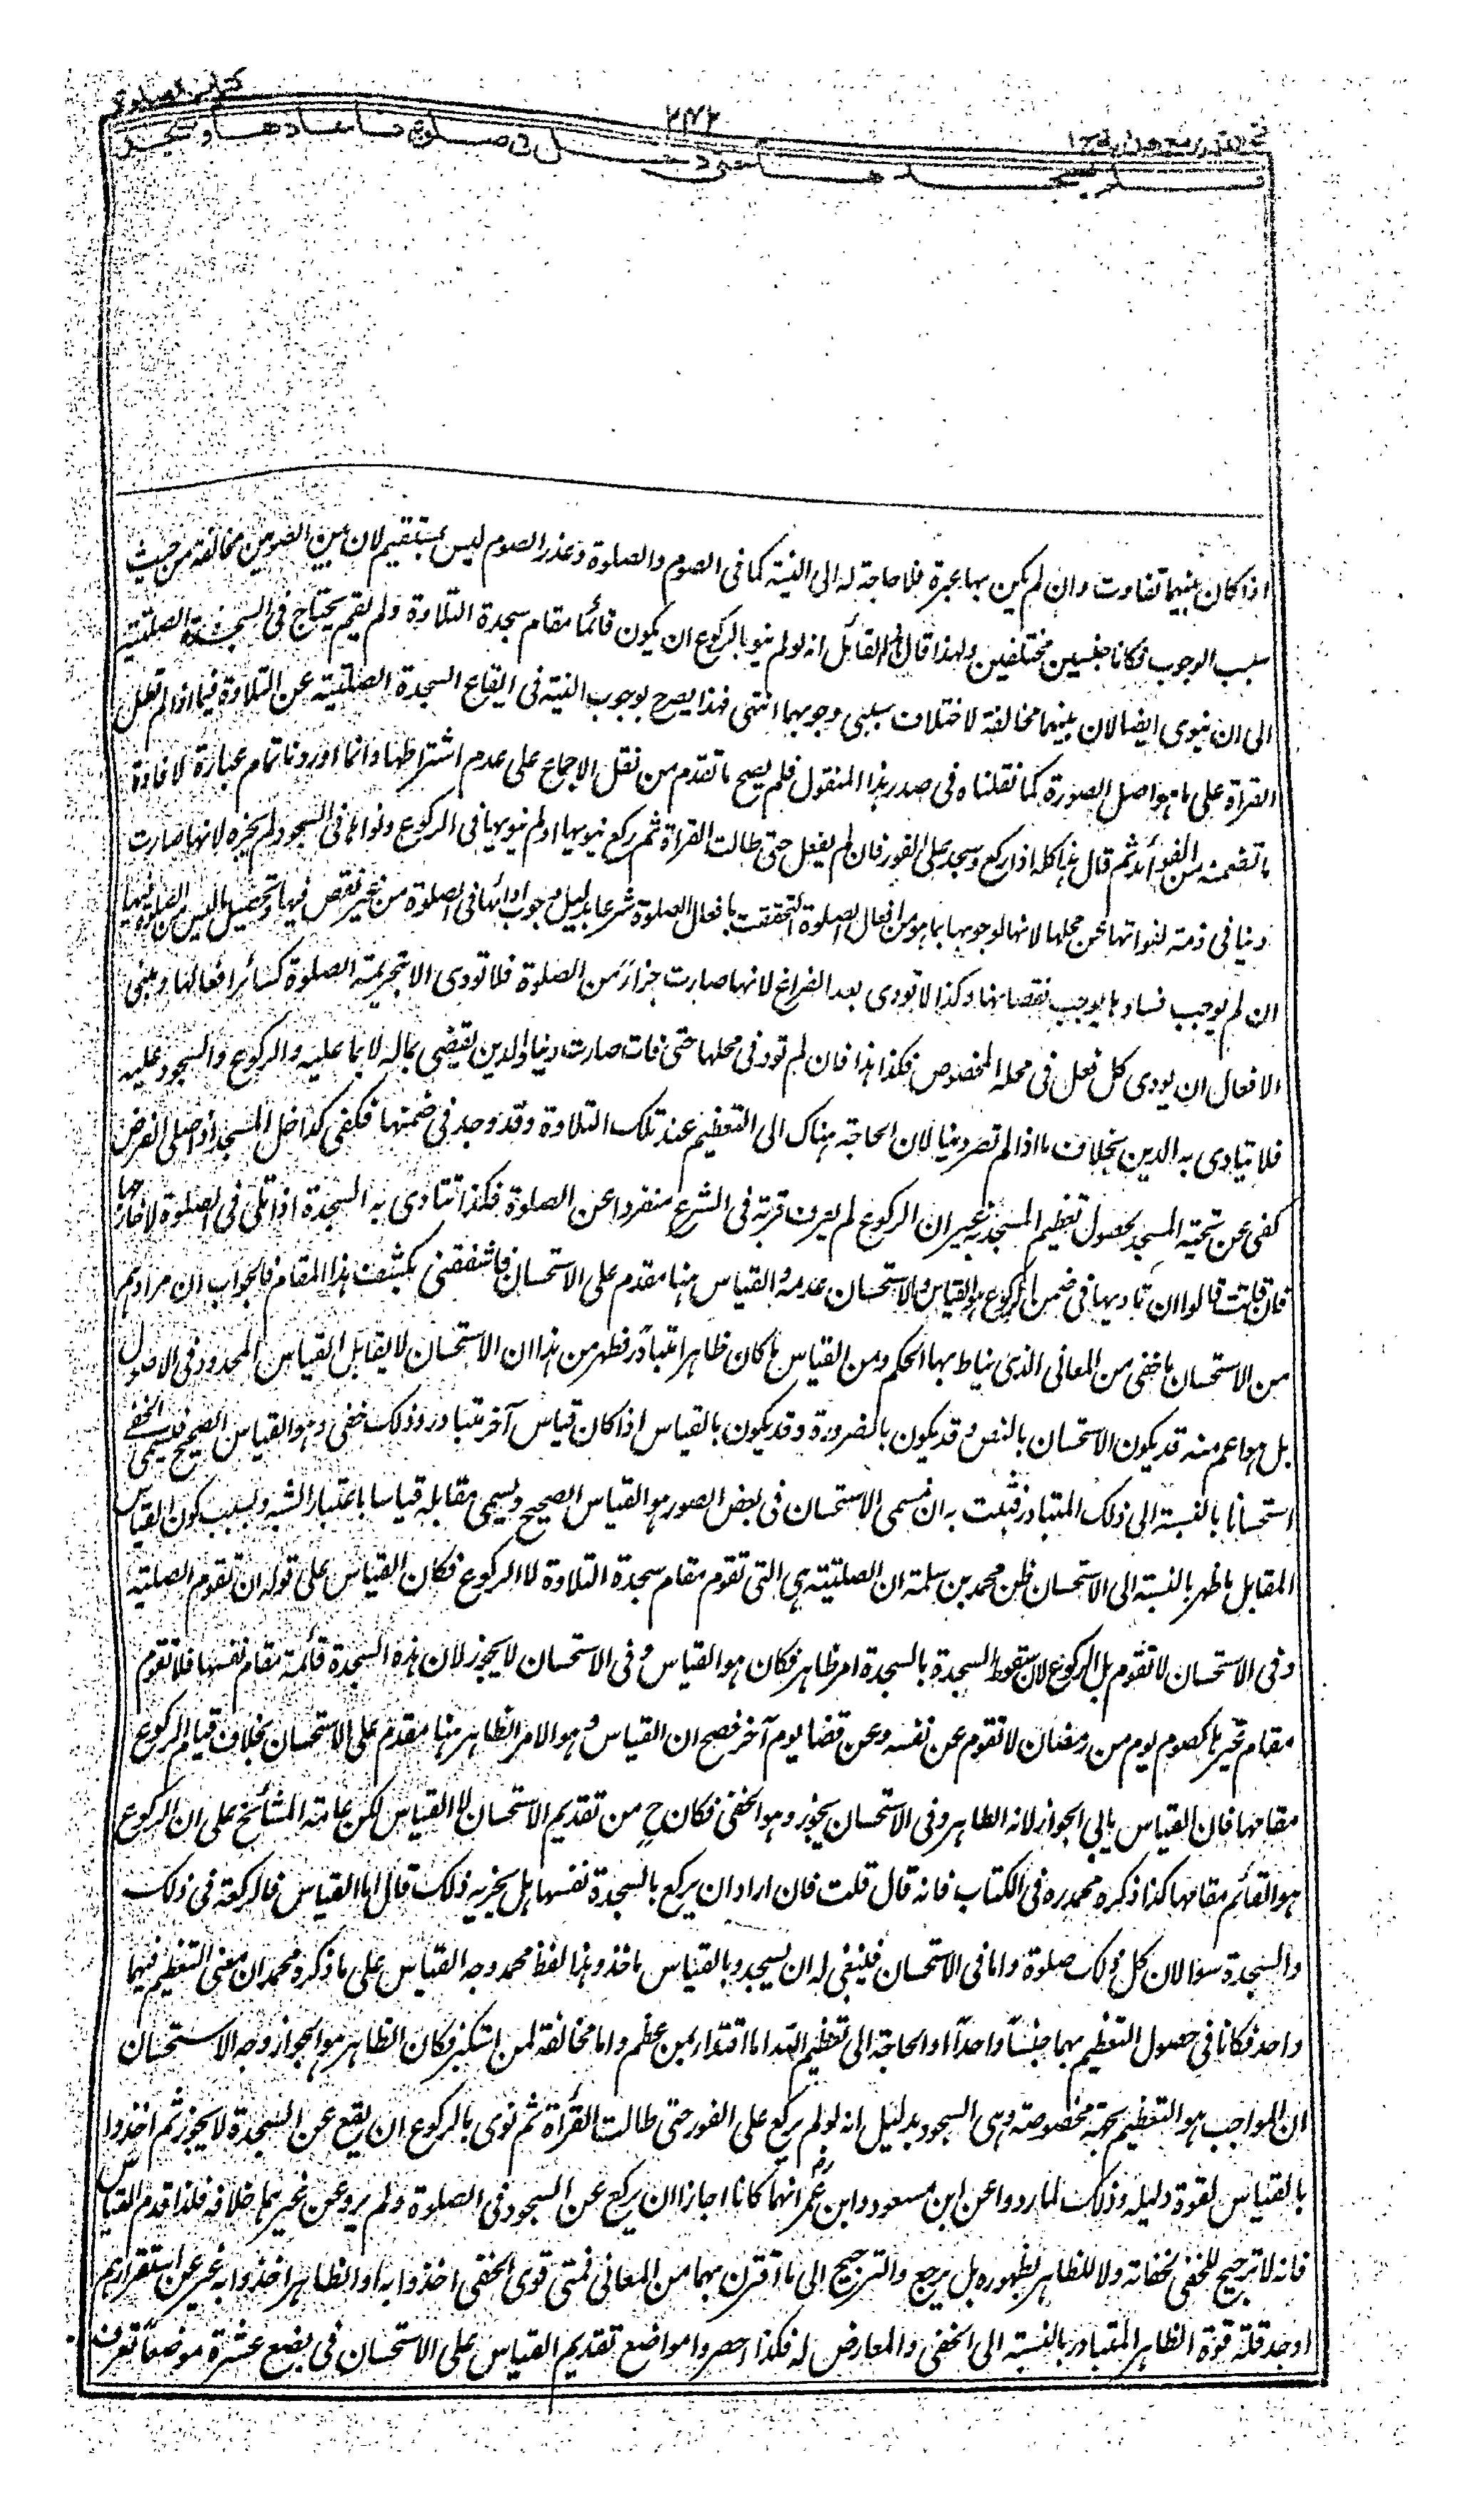 كتاب الصلوة
٢٤٢
فلم يسجد ها حتى دخل في صلوة فاعادها وسجد
اذا كان بينهما تفاوت وان لم يكن بها عبرة فلا حاجة له الى النية كما فى الصوم والصلوة وعذر الصوم ليس بمستقيم لان بين الصومين مخالفة من حيث
سبب الوجوب فكانا جنسين مختلفين ولهذا قال هذا القائل انه لو لم ينو بالركوع ان يكون قائما مقام سجدة التلاوة ولم يقم يحتاج فى السجدة الصلبتية
الى ان ينوى ايضا لان بينهما مخالفة لاختلاف سببى وجوبهما انتهى فهذا يصرح بوجوب النية فى ايقاع السجدة الصلبتية عن التلاوة فيما اذا لم تطل
القراة على ما هو اصل الصورة كما نقلناه فى صدر هذا المنقول فلم يصح ما تقدم من نقل الاجماع على عدم اشتراطها وانما اوردنا تمام عبارة لافادة
ما تضمنه من الفوائد ثم قال هذا كله اذا ركع وسجد على الفور فان لم يفعل حتى طالت القراة ثم ركع ينويها او لم ينويها فى الركوع ونواها فى السجود لم يجزه لانها صارت
دينا فى ذمته لفواتها عن محلها لانها لوجوبها بما هو من افعال الصلوة التحقت بافعال الصلوة شرعا بدليل وجوب ادائها فى الصلوة من غير نقص فيها وتحصيل ما ليس من الصلوة فيها
ان لم يوجب فسادها يوجب نقصانها وكذا لا تودى بعد الفراغ لانها صارت جزاء من الصلوة فلا تودى الا بتحريمة الصلوة كسائر افعالها ومبنى
الافعال ان يودى كل فعل فى محله المخصوص فكذا هذا فان لم تود فى محلها حتى فات صارت دينا والدين يقضى بماله لا بما عليه والركوع والسجود عليه
فلا يتادى به الدين بخلاف ما اذا لم تصر دينا لان الحاجة هناك الى التعظيم عند تلك التلاوة وقد وجد فى ضمنها فكفى كداخل المسجد اذا صلى الفرض
كفى عن تحية المسجد لحصول تعظيم المسجد غير ان الركوع لم يعرف قربة فى الشرع منفردا عن الصلوة فكذا تتادى به السجدة اذا تلى فى الصلوة لا خارجها
فان قلت قالوا ان تاديها فى ضمن الركوع هو القياس والاستحسان عدمه والقياس هنا مقدم على الاستحسان فاشفقنى بكشف هذا المقام فالجواب ان مرادهم
من الاستحسان ما خفى من المعانى الذى يناط بها الحكم ومن القياس ما كان ظاهرا متبادر فظهر من هذا ان الاستحسان لا يقابل القياس المحدود فى الاصول
بل هو اعم منه قد يكون الاستحسان بالنص وقد يكون بالضرورة وقد يكون بالقياس اذا كان قياس آخر متبادر وذلك خفى وهو القياس الصحيح فيسمى الخفى
استحسانا بالنسبة الى ذلك المتبادر فثبت به ان مسمى الاستحسان فى بعض الصور هو القياس الصحيح ويسمى مقابله قياسا باعتبار الشبه وبسبب كون القياس
المقابل ما ظهر بالنسبة الى الاستحسان ظن محمد بن سلمة ان الصلبتية هى التى تقوم مقام سجدة التلاوة لا الركوع فكان القياس على قوله ان تقوم الصلبية
وفى الاستحسان لا تقوم بل الركوع لان سقوط السجدة بالسجدة امر ظاهر فكان هو القياس وفى الاستحسان لا يجوز لان هذه السجدة قائمة مقام نفسها فلا تقوم
مقام غيرها كصوم يوم من رمضان لا تقوم عن نفسه وعن قضا يوم آخر فصح ان القياس وهو الامر الظاهر هنا مقدم على الاستحسان بخلاف قيام الركوع
مقامها فان القياس يابى الجواز لانه الظاهر وفى الاستحسان يجوز وهو الخفى فكان ح من تقديم الاستحسان لا القياس لكن عامة المشائخ على ان الركوع
هو القائم مقامها كذا ذكره محمد ره فى الكتاب فانه قال قلت فان اراد ان يركع بالسجدة نفسها هل يجزيه ذلك قال اما القياس فالركعة فى ذلك
والسجدة سوا لان كل ذلك صلوة واما فى الاستحسان فينبغى له ان يسجد وبالقياس ناخذ وهذا لفظ محمد وجه القياس على ما ذكره محمد ان معنى التعظيم فيهما
واحد فكانا فى حصول التعظيم بهما جنسا واحدا والحاجة الى تعظيم الله اما اقتداء بمن عظم واما مخالفة لمن استكبر فكان الظاهر هو الجواز وجه الاستحسان
ان الواجب هو التعظيم بجهة مخصوصة وهى السجود بدليل انه لو لم يركع على الفور حتى طالت القرأة ثم نوى بالركوع ان يقع عن السجدة لا يجوز ثم اخذوا
بالقياس لقوة دليله وذلك لما رووا عن ابن مسعود وابن عمر رض انهما كانا اجازا ان يركع عن السجود فى الصلوة ولم يرو عن غيرهما خلافه فلذا قدم القياس
فانه لا ترجيح للخفى لخفائه ولا للظاهر لظهوره بل يرجع والترجيح الى ما اقترن بهما من المعانى فمتى قوى الخفى اخذوا به او الظاهر اخذوا به غير عن استقرارهم
اوجد قلة قوة الظاهر المتبادر بالنسبة الى الخفى والمعارض له فكذا حصروا مواضع تقديم القياس على الاستحسان فى بضع عشرة موضعا تعرف